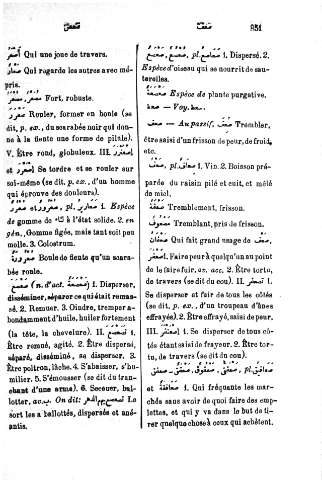 صعفق
صعف
951
أَصْعَر Qui a une joue de travers.
صَعَّار Qui regarde les autres avec mé-
pris.
Fort, robuste.
صَعْرَر Rouler, former en boule (se
dit, p. ex., du scarabée noir qui don-
ne à la fiente une forme de pilule).
V. Être rond, globuleux. III.
Se tordre et se rouler sur
soi-même (se dit, p. ex., d'un homme
qui éprouve des douleurs).
صُعْرُور, pl. صَعَارِير 1. Espèce
de gomme de à l'état solide. 2. en
gén., Gomme figée, mais tant soit peu
molle. 3. Colostrum.
صُعْرُورَة Boule de fiente qu'un scara-
bée roule.
صَعْصَع (n. d'act. صَعْصَعَة) 1. Disperser,
disséminer, séparer ce qui était ramas-
sé. 2. Remuer. 3. Oindre, tremper a-
bondamment d'huile, huiler fortement
(la tête, la chevelure). II. تَصَعْصَع 1.
Être remué, agité. 2. Être dispersé,
séparé, disséminé, se disperser. 3.
Être poltron, lâche. 4. S'abaisser, s'hu-
milier. 5. S'émousser (se dit du tran-
chant d'une arme). 6. Secouer, bal-
lotter, ac. ب. On dit: Le
sort les a ballottés, dispersés et ané-
antis.
صَعْصَع, pl. صَعَاصِع 1. Dispersé. 2.
Espèce d'oiseau qui se nourrit de sau-
terelles.
Espèce de plante purgative.
صعط — Voy.
صعف — Au passif, صُعِفَ Trembler,
être saisi d'un frisson de peur, de froid,
etc.
صَعْف, pl. صِعَاف 1. Vin. 2. Boisson pré-
parée du raisin pilé et cuit, et mêlé
de miel.
صَعْفَة Tremblement, frisson.
مَصْعُوف Tremblant, pris de frisson.
صَعْفَان Qui fait grand usage de صَعْف.
صَعْفَر Faire peur à quelqu'un au point
de le faire fuir, av. acc. 2. Être tortu,
de travers (se dit du cou). II. تَصَعْفَر 1.
Se disperser et fuir de tous les côtés
(se dit, p. ex., d'un troupeau d'ânes
etc.). 2. Être effrayé, saisi de peur.
III. اِصْعَنْفَر 1. Se disperser de tous cô-
tés étant saisi de frayeur. 2. Être tor-
tu, de travers (se dit du cou).
صَعْفَق, صَعْفَقِيّ, صَعْفُوق, pl. صَعَافِق
et صَعَافِقَة 1. Qui fréquente les mar-
chés sans avoir de quoi faire des em-
plettes, et qui y va dans le but de ti-
rer quelque chose à ceux qui achètent.